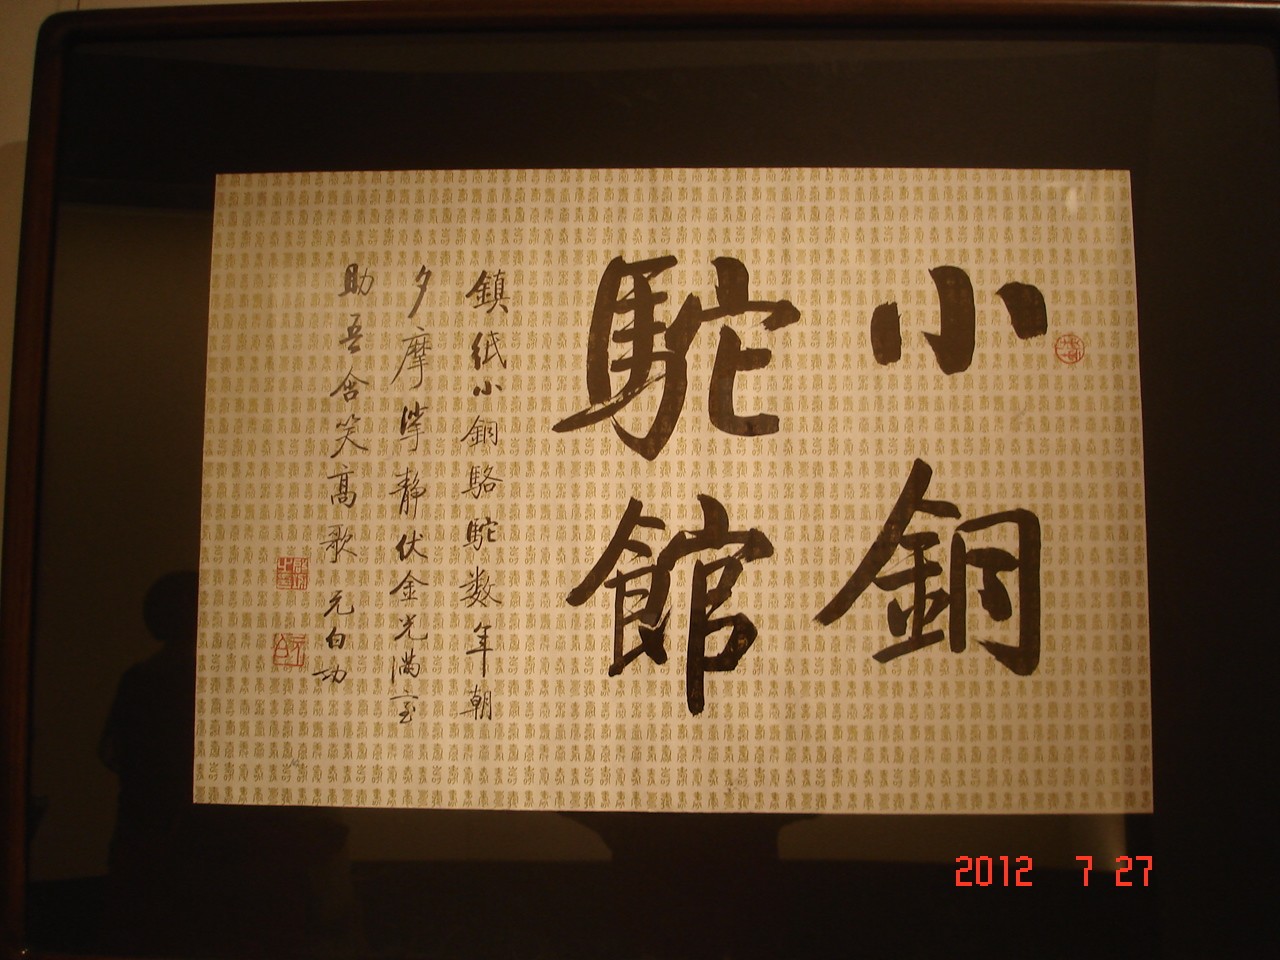 小銅
駝館
鎮紙小銅駱駝数年朝
夕摩挲静伏金光满室
助吾含笑高歌 元白功
2012 7 27